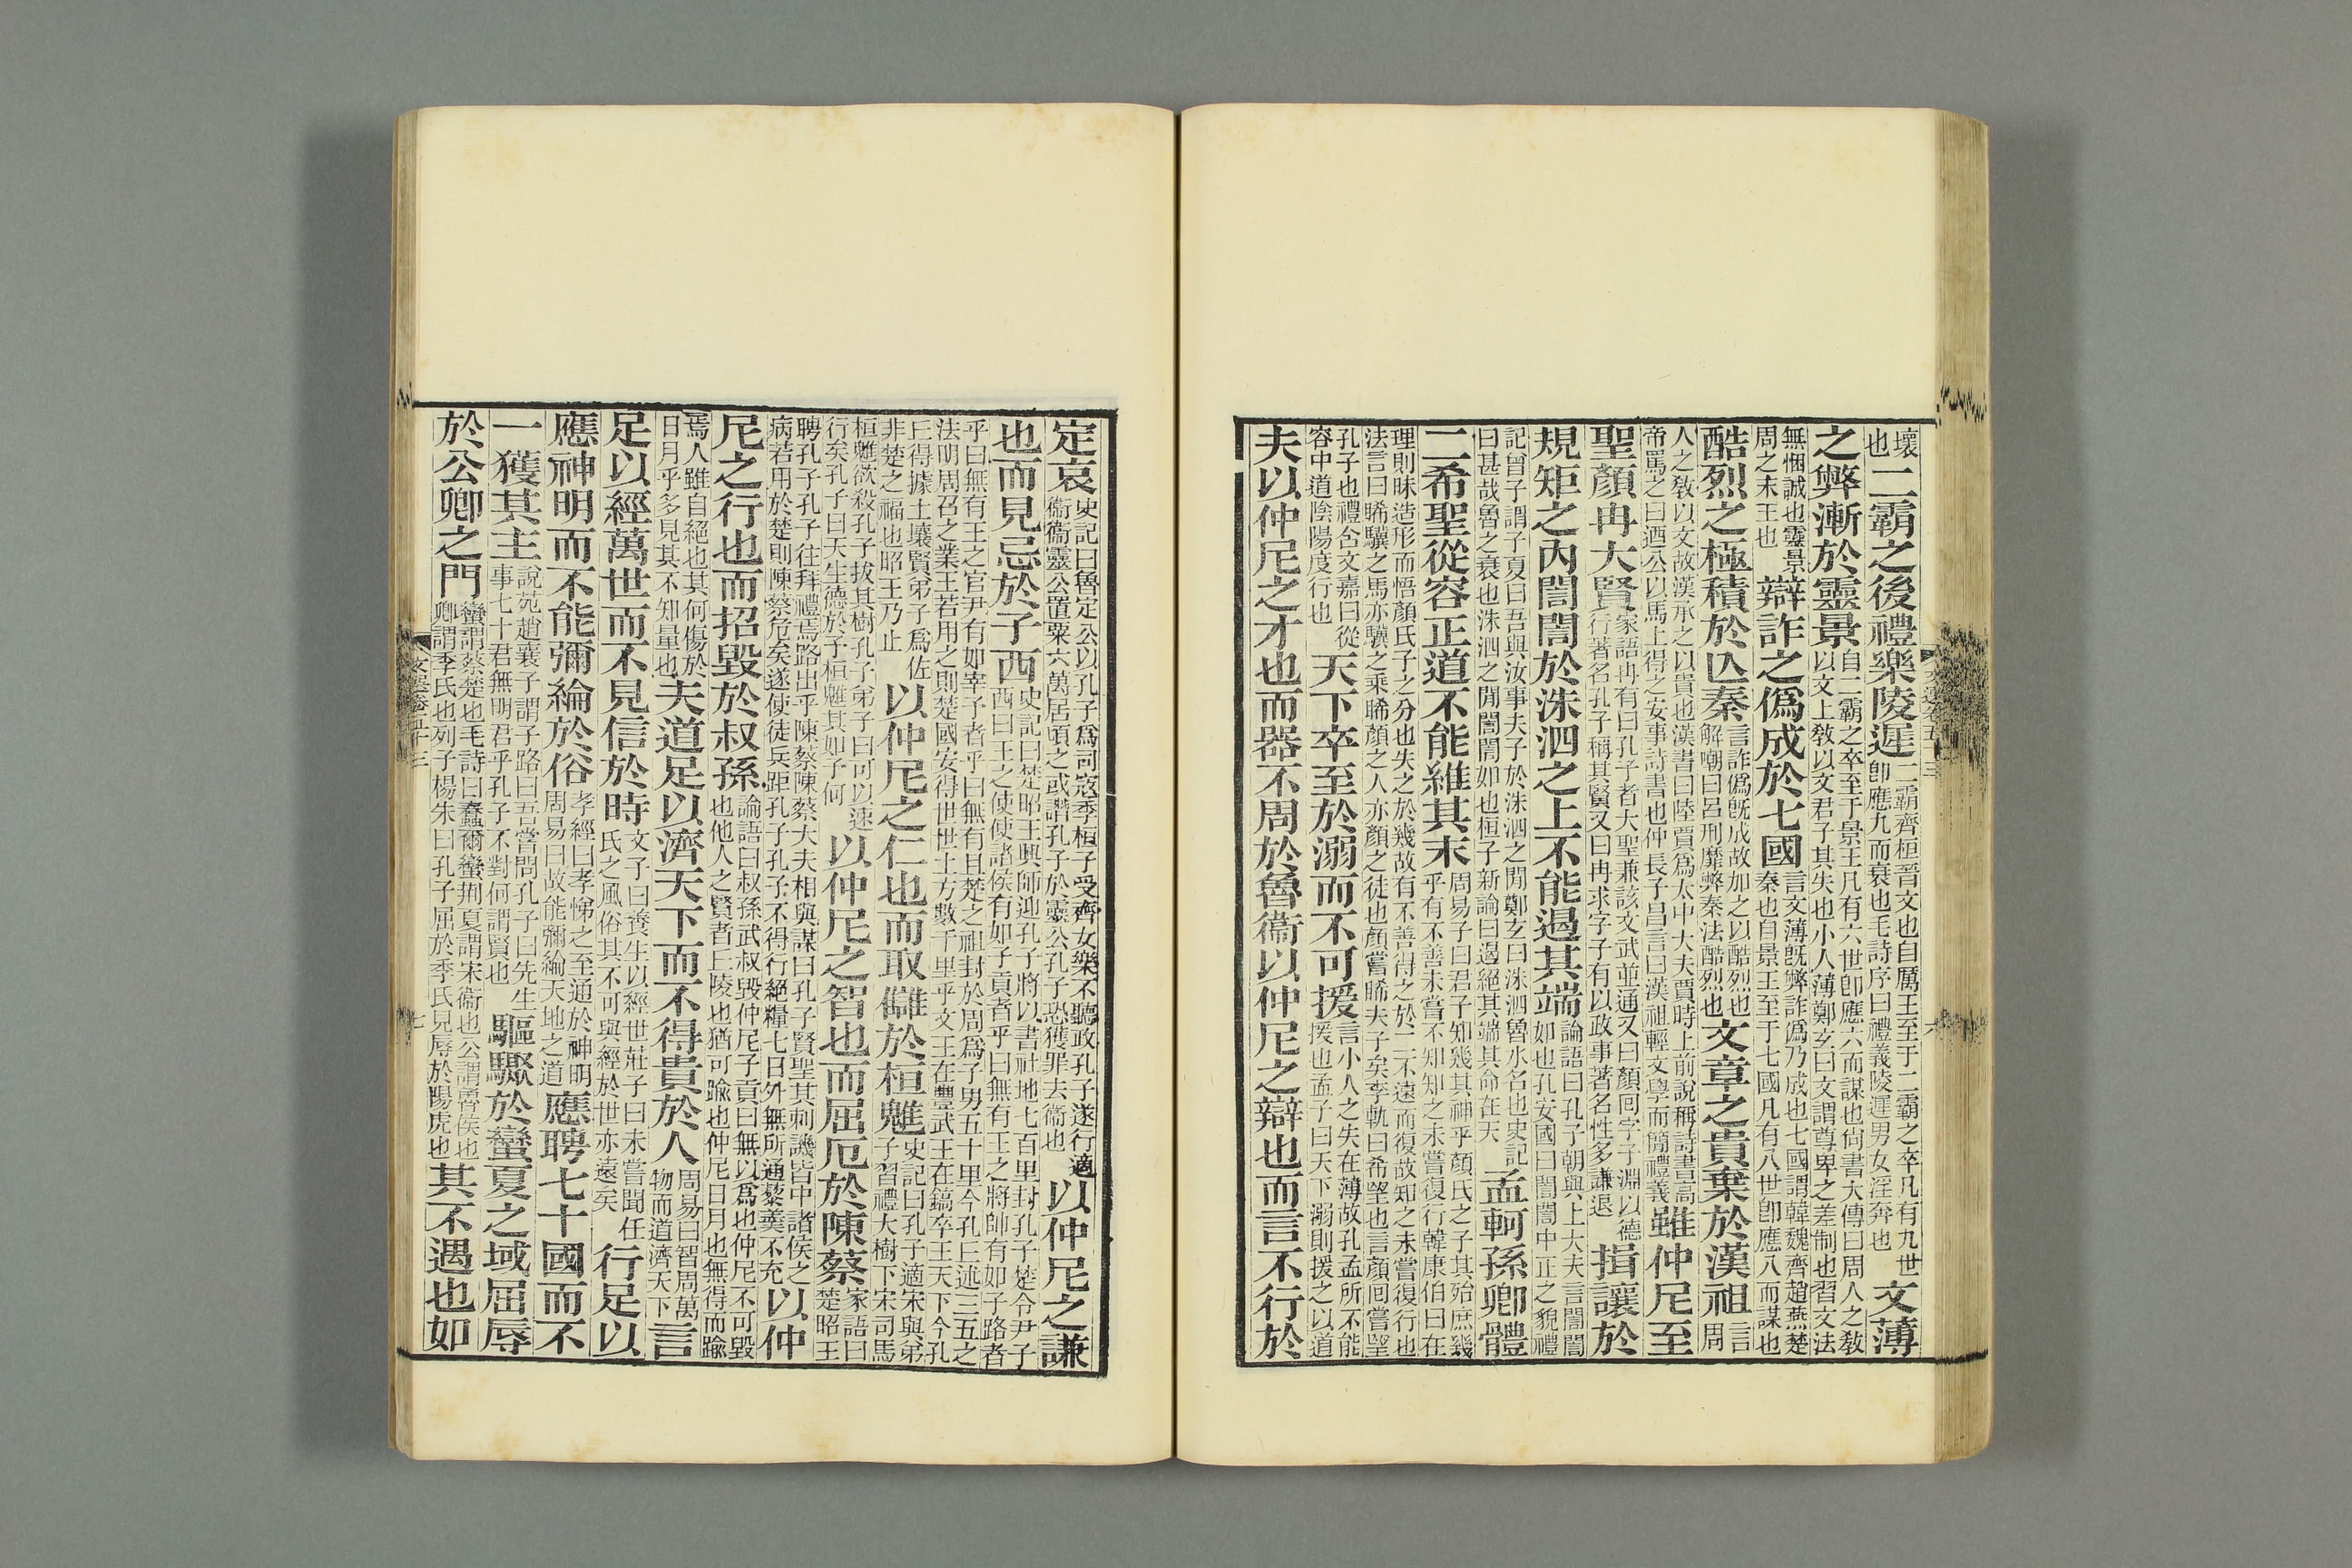 壞也二霸之後禮樂陵遲二霸齊桓晉文也自厲王至于二霸之卒凡有九世即應九而衰也毛詩序曰禮義陵遲男女淫奔也文薄
之弊漸於靈景自二霸之卒至于景王凡有六世即應六而謀也尙書大傳曰周人之敎以文上敎以文君子其失也小人薄鄭玄曰文謂尊卑之差制也習文法
無悃誠也靈景周之末王也辯詐之僞成於七國言文薄旣弊詐僞乃成也七國謂韓魏齊趙燕楚秦也自景王至于七國凡有八世即應八而謀也
酷烈之極積於亾秦言詐僞旣成故加之以酷烈也解嘲曰呂刑靡弊秦法酷烈也文章之貴棄於漢祖言周
人之敎以文故漢承之以貴也漢書曰陸賈爲太中大夫賈時上前說稱詩書高帝罵之曰迺公以馬上得之安事詩書也仲長子昌言曰漢祖輕文學而簡禮義雖仲尼至
聖顏冉大賢家語冉有曰孔子者大聖兼該文武並通又曰顏回字子淵以德行著名孔子稱其賢又曰冉求字子有以政事著名性多謙退揖讓於
規矩之內誾誾於洙泗之上不能遏其端論語曰孔子朝與上大夫言誾誾如也孔安國曰誾誾中正之貌禮
記曾子謂子夏曰吾與汝事夫子於洙泗之閒鄭玄曰洙泗魯水名也史記曰甚哉魯之衰也洙泗之閒誾誾如也桓子新論曰遏絕其端其命在天孟軻孫卿體
二希聖從容正道不能維其末周易子曰君子知幾其神乎顏氏之子其殆庶幾乎有不善未嘗不知知之未嘗復行韓康伯曰在
理則昧造形而悟顏氏子之分也失之於幾故有不善得之於二不遠而復故知之未嘗復行也法言曰睎驥之馬亦驥之乘睎顏之人亦顏之徒也顏嘗睎夫子矣李軌曰希望也言顏回嘗望
孔子也禮含文嘉曰從容中道陰陽度行也天下卒至於溺而不可援言小人之失在薄故孔孟所不能援也孟子曰天下溺則援之以道
夫以仲尼之才也而器不周於魯衞以仲尼之辯也而言不行於
定哀史記曰魯定公以孔子爲司寇季桓子受齊女樂不聽政孔子遂行適衞衞靈公置粟六萬居頃之或譖孔子於靈公孔子恐獲罪去衞也以仲尼之謙
也而見忌於子西史記曰楚昭王興師迎孔子將以書社地七百里封孔子楚令尹子西曰王之使使諸侯有如子貢者乎曰無有王之將帥有如子路者
乎曰無有王之官尹有如宰予者乎曰無有且楚之祖封於周爲子男五十里今孔丘述三五之法明周召之業王若用之則楚國安得世世土方數千里乎文王在豐武王在鎬卒王天下今孔
丘得據土壤賢弟子爲佐非楚之福也昭王乃止以仲尼之仁也而取讎於桓魋史記曰孔子適宋與弟子習禮大樹下宋司馬
桓魋欲殺孔子拔其樹孔子弟子曰可以速行矣孔子曰天生德於予桓魋其如予何以仲尼之智也而屈厄於陳蔡家語曰楚昭王
聘孔子孔子往拜禮焉路出乎陳蔡陳蔡大夫相與謀曰孔子賢聖其刺譏皆中諸侯之病若用於楚則陳蔡危矣遂使徒兵距孔子孔子不得行絕糧七日外無所通藜羹不充以仲
尼之行也而招毀於叔孫論語曰叔孫武叔毀仲尼子貢曰無以爲也仲尼不可毀也他人之賢者丘陵也猶可踰也仲尼日月也無得而踰
焉人雖自絕也其何傷於日月乎多見其不知量也夫道足以濟天下而不得貴於人周易曰智周萬物而道濟天下言
足以經萬世而不見信於時文子曰養生以經世莊子曰未嘗聞任氏之風俗其不可與經於世亦遠矣行足以
應神明而不能彌綸於俗孝經曰孝悌之至通於神明周易曰故能彌綸天地之道應聘七十國而不
一獲其主說苑趙襄子謂子路曰吾嘗問孔子曰先生事七十君無明君乎孔子不對何謂賢也驅驟於蠻夏之域屈辱
於公卿之門蠻謂蔡楚也毛詩曰蠢爾蠻荆夏謂宋衞也公謂魯侯也卿謂季氏也列子楊朱曰孔子屈於季氏見辱於陽虎也其不遇也如